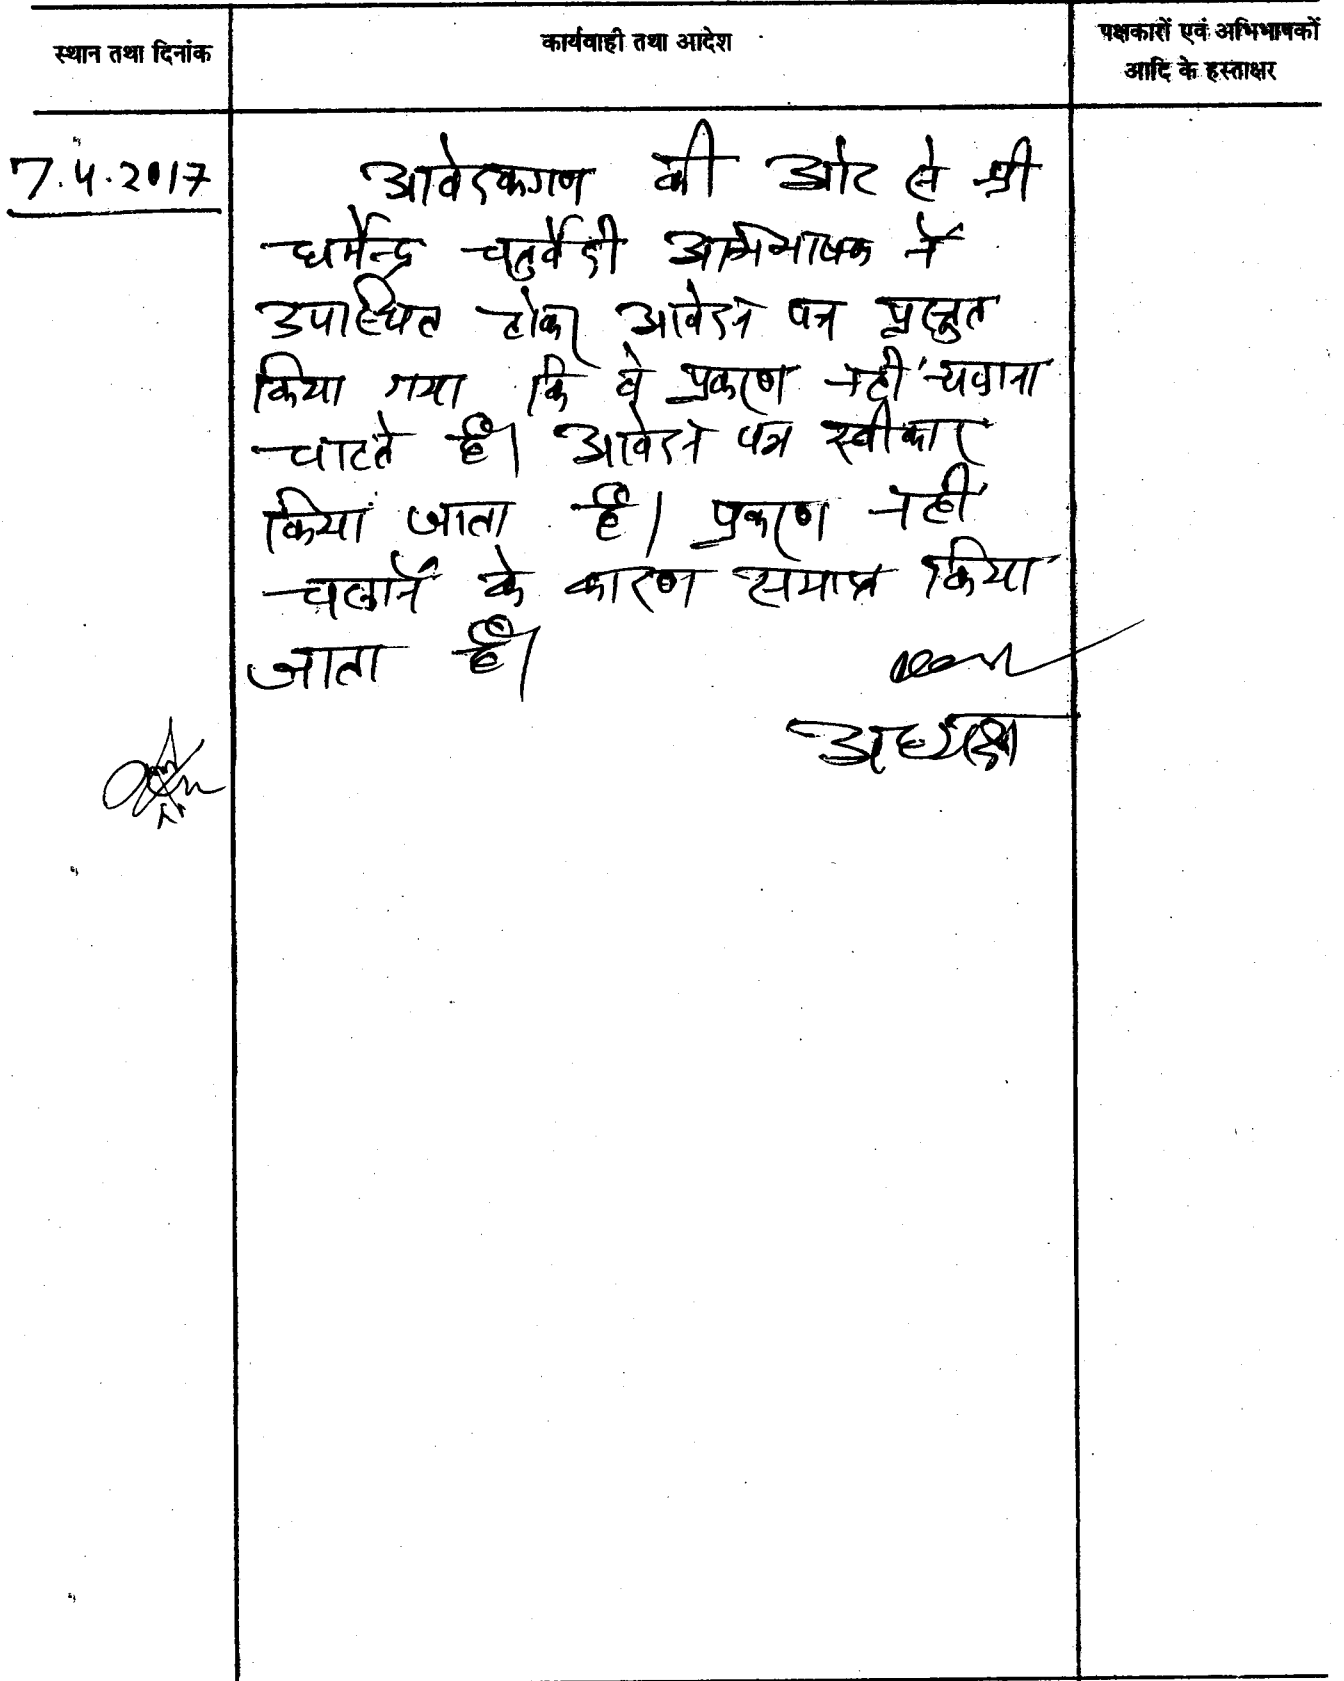 स्थान तथा दिनांक
कार्यवाही तथा आदेश
पक्षकारों एवं अभिभाषकों
आदि के हस्ताक्षर
7.4.2017
आवेदकगण की ओर से श्री
धर्मेन्द्र चतुर्वेदी अभिभाषक ने
उपस्थित होकर आवेदन पत्र प्रस्तुत
किया गया कि वे प्रकरण नहीं चलाना
चाहते हैं। आवेदन पत्र स्वीकार
किया जाता है। प्रकरण नहीं
चलाने के कारण समाप्त किया
जाता है।
अध्यक्ष